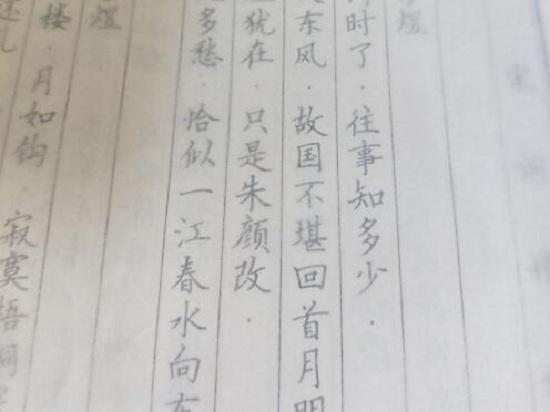 煜
时了·往事知多少·
东风·故国不堪回首月明
犹在·只是朱颜改·
多愁·恰似一江春水向东
煜
楼·月如钩·寂寞梧桐